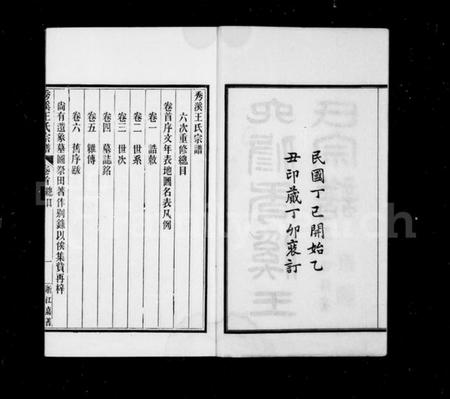 民國丁巳開始乙
丑印歲丁卯裒訂
秀溪王氏宗譜
六次重修總目
卷首序文年表地圖名表凡例
卷一 誥敕
卷二 世系
卷三 世次
卷四 墓誌銘
卷五 雜傳
卷六 舊序跋
尚有遺象墓圖祭田著作別錄以俟集貲再梓
秀溪王氏宗譜
卷首總目
一